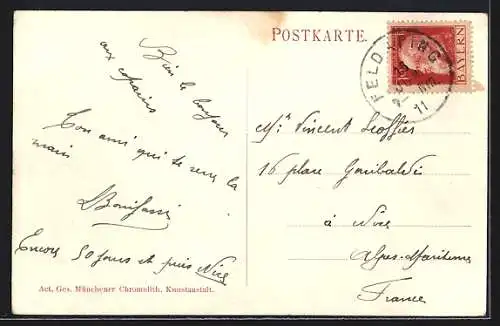 POSTKARTE.
BAYERN
FELDAFING
11
Bien le bonjour
aux copains
Ton ami qui te serre la
main
LBonifassi
Encore 50 jours et puis Nice
Mr. Vincent
16 place Garibaldi
à Nice
Alpes-Maritimes
France
Act. Ges. Münchener Chromolith. Kunstanstalt.